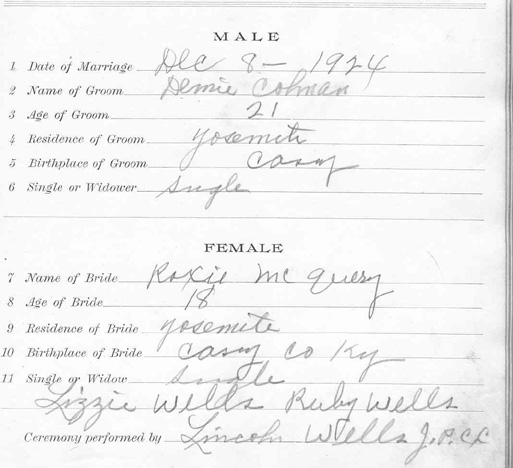 MALE
1 Date of Marriage Dec 8 - 1924
2 Name of Groom Demie Colman
3 Age of Groom 21
4 Residence of Groom Yosemite
5 Birthplace of Groom Casey
6 Single or Widower Single
FEMALE
7 Name of Bride Roxie McQuery
8 Age of Bride 18
9 Residence of Bride Yosemite
10 Birthplace of Bride Casey Co Ky
11 Single or Widow Single
Lizzie Wells Ruby Wells
Ceremony performed by Lincoln Wells J.P.C.C.